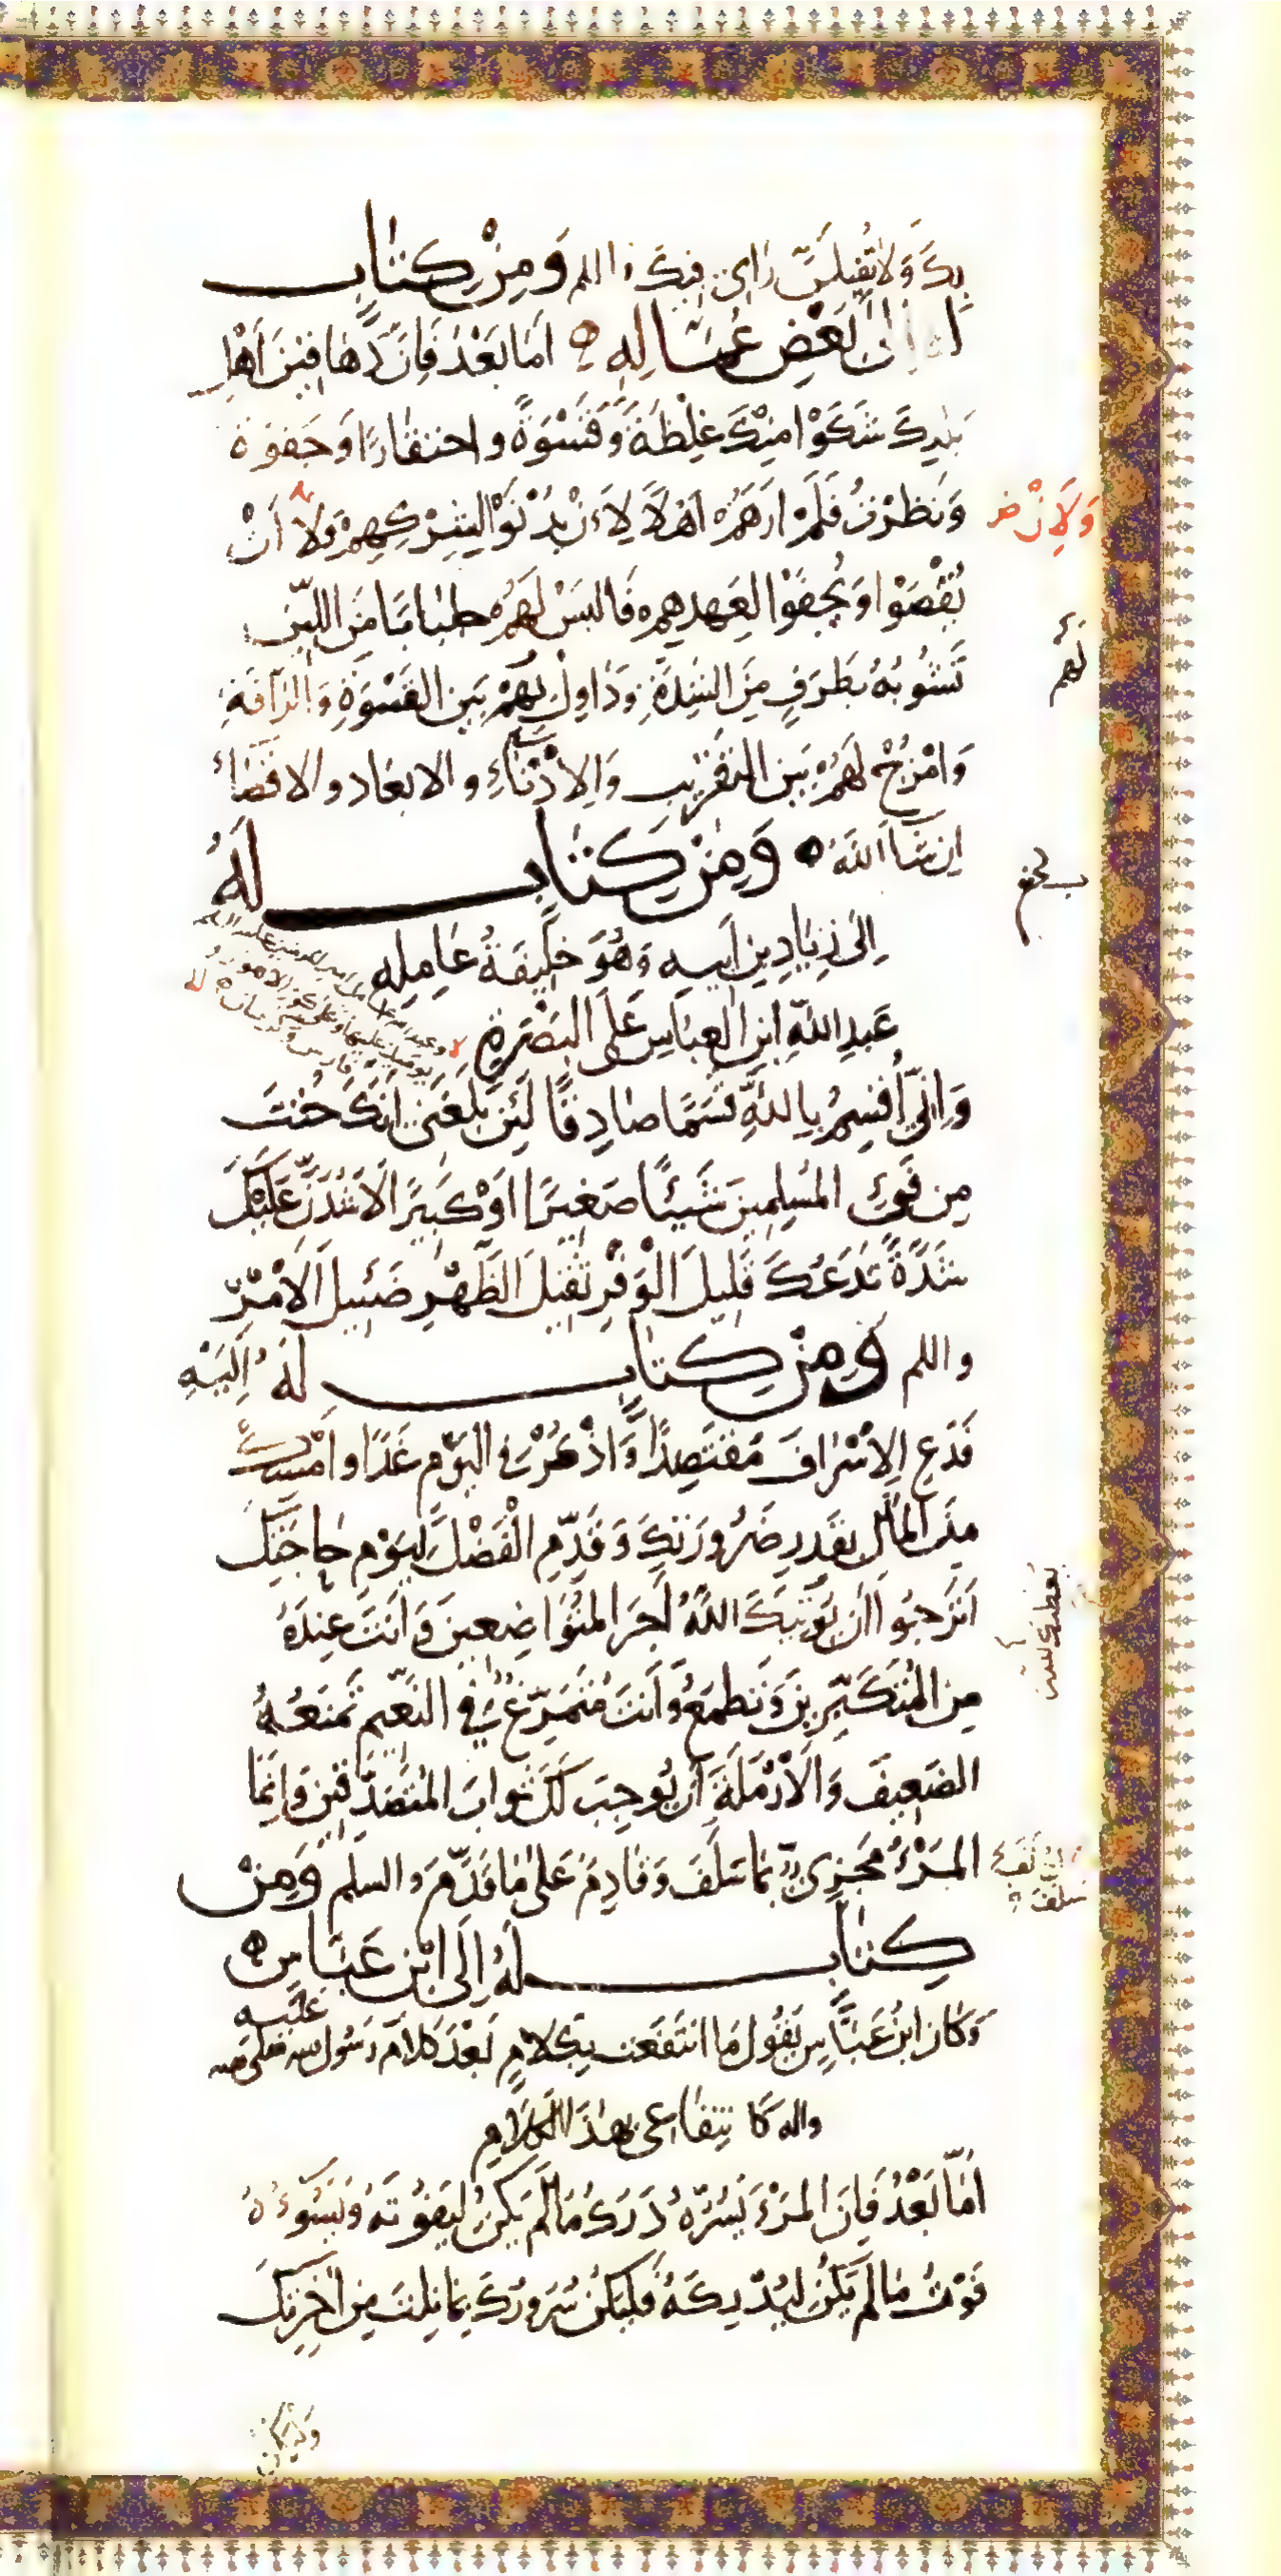 بِكَ وَلَا يَفِيلَنَّ رَأيِي فِيكَ والسلم وَمِنْ كِتَابٍ
لَهُ إِلَى بَعْضِ عُمَّالِهِ أَمَّا بَعْدُ فَإِنَّ دَهَاقِينَ أَهْلِ
بَلَدِكَ شَكَوْا مِنْكَ غِلْظَةً وَقَسْوَةً واحتِقَارًا وَجَفْوَةً
وَنَظَرْتُ فَلَمْ أَرَهُمْ أَهْلًا لِأَنْ يُدْنَوْا لِشِرْكِهِمْ وَلَا أَنْ
وَلِأَنْ
يُقْصَوْا وَيُجْفَوْا لِعَهدِهِم فَالبَسْ لَهُمْ جِلبَابًا مِنَ اللِّينِ
لَهُم
تَشُوبُهُ بِطَرَفٍ مِنَ الشِّدَّةِ وَدَاوِلْ لَهُمْ بَيْنَ القَسْوَةِ وَالرَّأفَةِ
وَامْزُجْ لَهُمْ بَيْنَ التَّقْرِيبِ وَالإدْنَاءِ والابعَادِ والاقصَاءِ
اِن شَاءَ اللهُ وَمِنْ كِتَابٍ لَهُ
اِلَى زِيَادِ بنِ اَبيهِ وَهُوَ خَلِيفَةُ عَامِلِهِ
عَبدِ اللهِ ابنِ العبَّاسِ عَلَى البَصْرَةِ
وَاِنِّي أُقسِمُ بِاللهِ قَسَمًا صَادِقًا لَئِن بَلَغَنِي اَنَّكَ خُنْتَ
مِن فَيءِ المُسلِمِينَ شَيئًا صَغِيرًا اَوْ كَبِيرًا لَأَشُدَّنَّ عَلَيْكَ
شَدَّةً تَدَعُكَ قَلِيلَ الْوَفْرِ ثَقِيلَ الظَّهْرِ ضَئِيلَ الأَمْرِ
والسلم وَمِنْ كِتَابٍ لَهُ اِلَيْهِ
فَدَعِ الإسْرَافَ مُقْتَصِدًا وَاذْكُرْ فِي اليَوْمِ غَدًا وامْسِكْ
مِنَ المَالِ بِقَدرِ ضَرُورَتِكَ وَقَدِّمِ الْفَضْلَ لِيَوْمِ حَاجَتِكَ
اَتَرْجُوا اَن يُؤتِيَكَ اللهُ اَجرَ المُتَوَاضِعِينَ وَاَنتَ عِندَهُ
مِنَ المُتَكَبِّرِينَ وَتَطمَعُ وَاَنتَ مُتَمَرِّغٌ فِي النَّعِيمِ تَمنَعُهُ
الضَعِيفَ وَالأَرْمَلَةَ اَن يُوجِبَ لَكَ ثَوَابَ المُتَصَدِّقِينَ وَاِنَّمَا
المَرْءُ مَجْزِيٌّ بِمَا سَلَفَ وَقَادِمٌ عَلَى مَا قَدَّمَ والسلم وَمِنْ
كِتَابٍ لَهُ اِلَى ابْنِ عَبَّاسٍ
وَكَانَ ابنُ عَبَّاسٍ يَقُولُ مَا انتَفَعت بِكَلَامٍ بَعْدَ كَلَامِ رَسُولِ الله صلى الله عليه
واله كَانتِفَاعِي بِهَذَا الكَلَامِ
اَمَّا بَعْدُ فَإِنَّ المَرْءَ يَسُرُّهُ دَرَكُ مَا لَمْ يَكُنْ لِيَفُوتَهُ وَيَسُوءُهُ
فَوْتُ مَا لَمْ يَكُنْ لِيُدْرِكَهُ فَليَكُنْ سُرُورُكَ بِمَا نِلتَ مِنْ آخِرَتِكَ
وَليَكُنْ